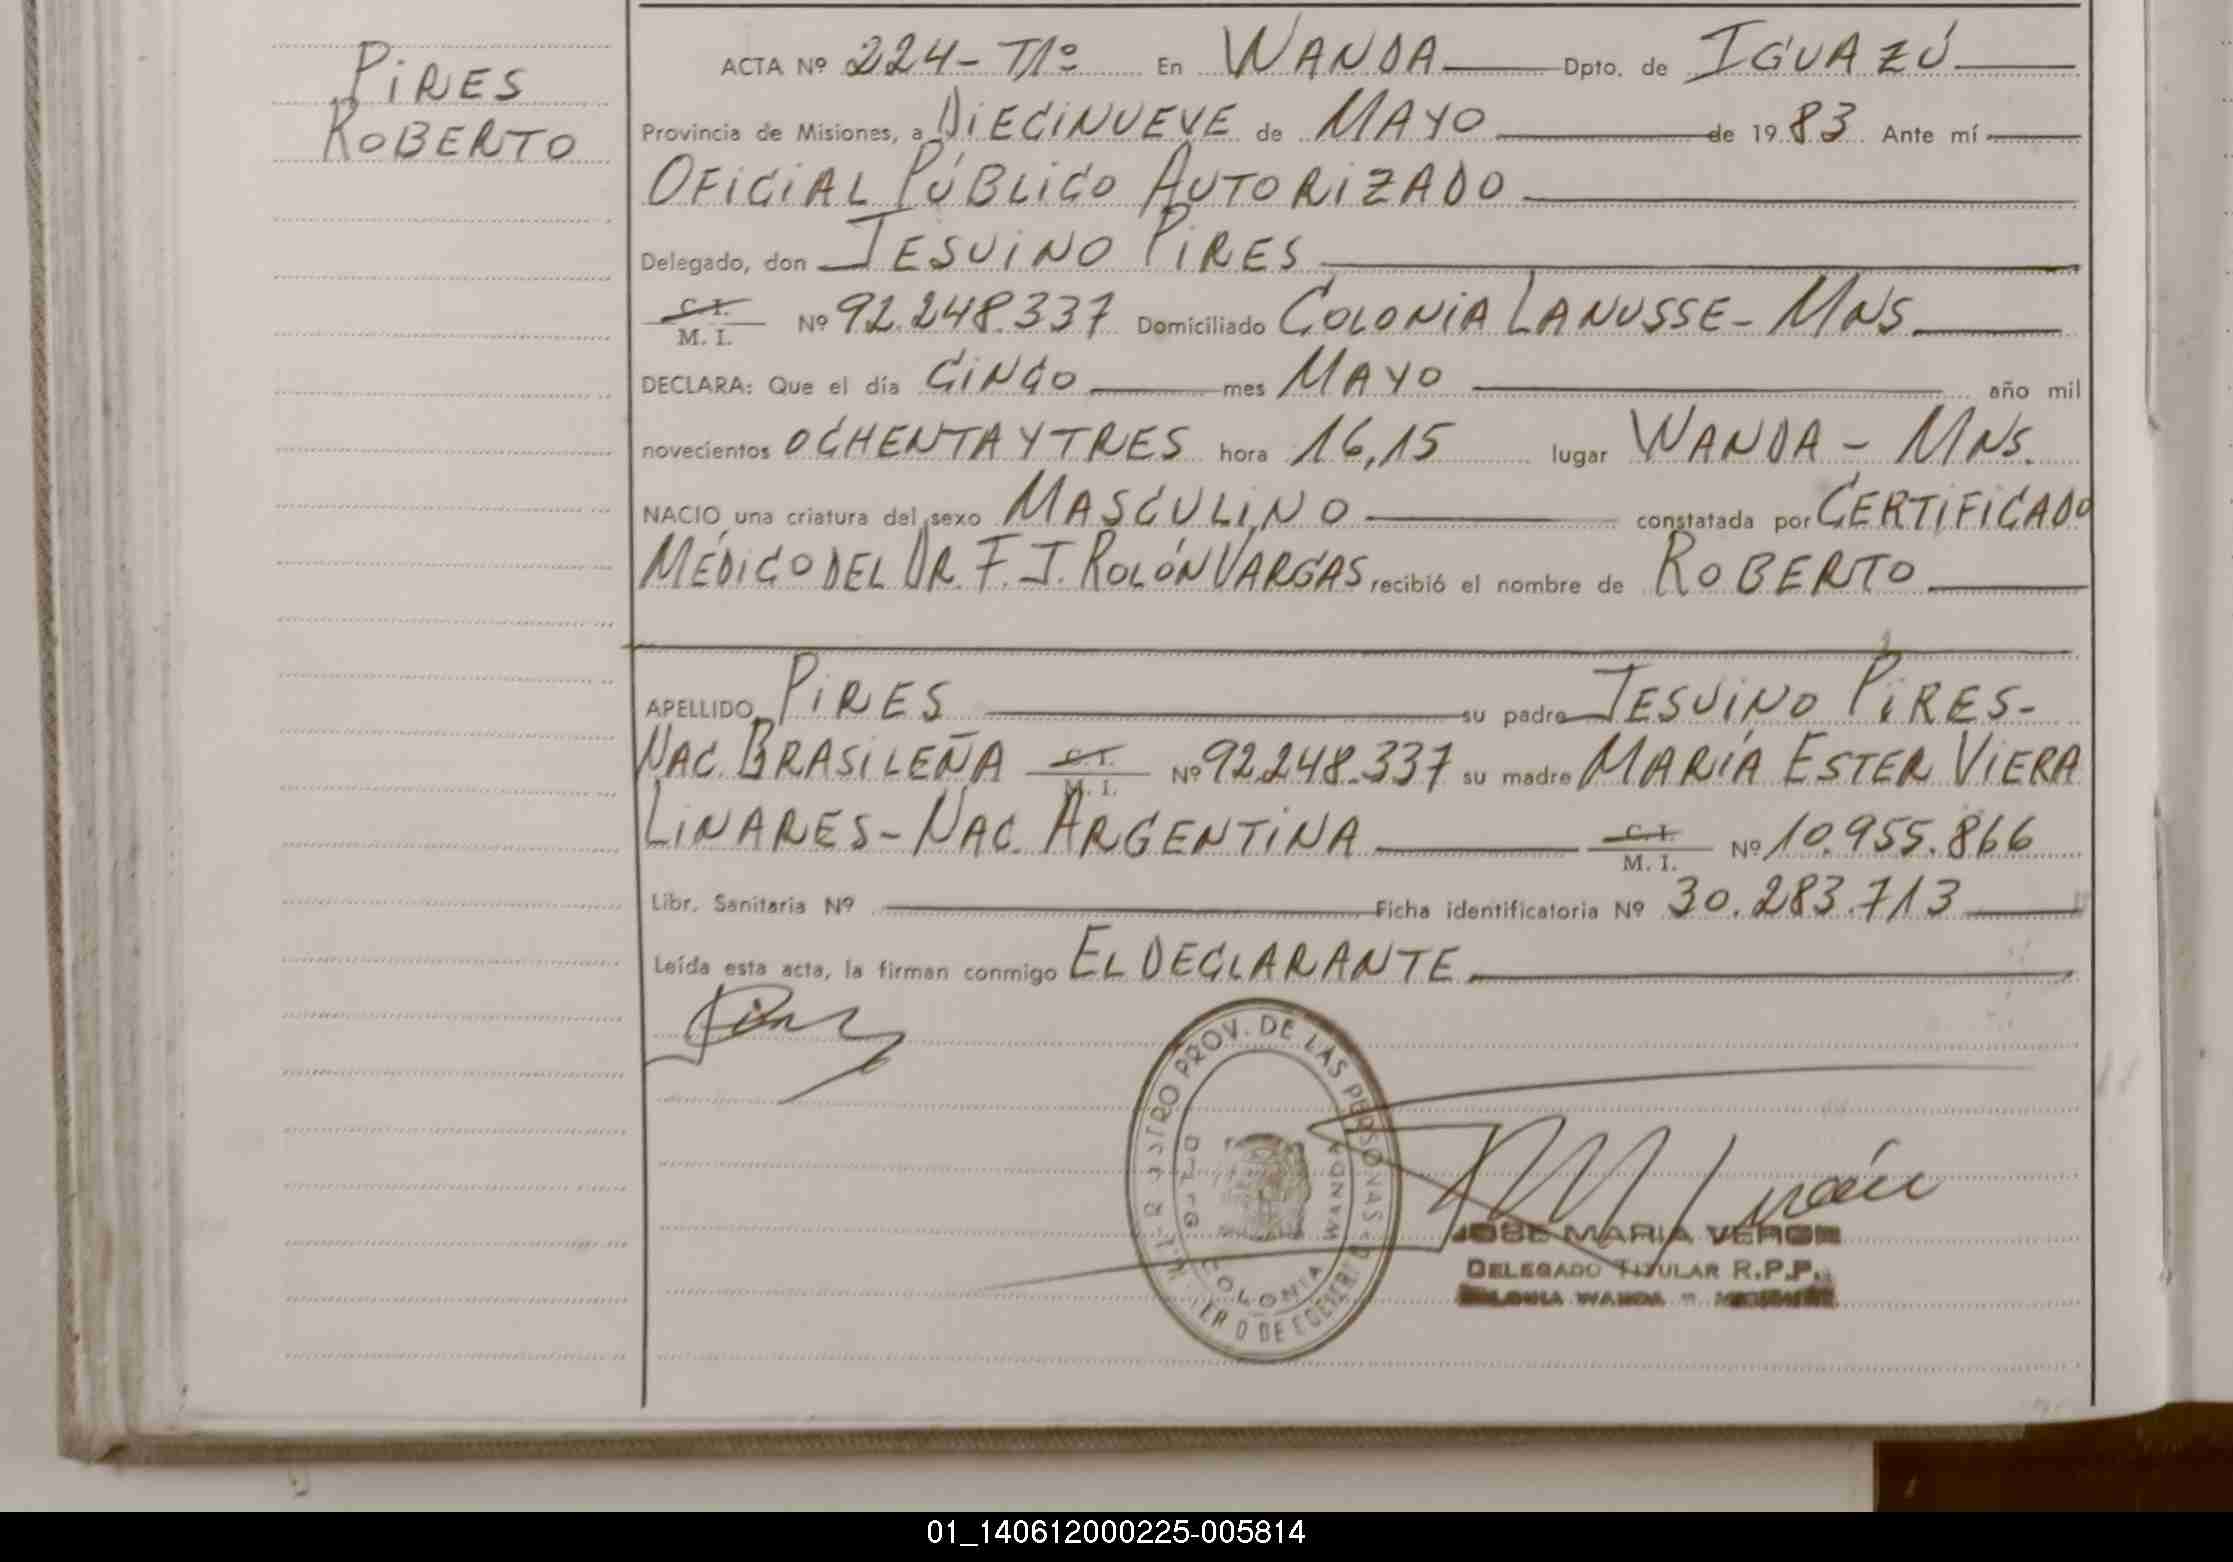 PIRES
ROBERTO
ACTA Nº 224 - T1º En WANDA Dpto. de IGUAZÚ
Provincia de Misiones, a DIECINUEVE de MAYO de 1983 Ante mí
OFICIAL PÚBLICO AUTORIZADO
Delegado, don JESUINO PIRES
C. I.
M. I. Nº 92.248.337 Domiciliado COLONIA LANUSSE - MNS
DECLARA: Que el día CINCO mes MAYO año mil
novecientos OCHENTA Y TRES hora 16,15 lugar WANDA - MNS.
NACIO una criatura del sexo MASCULINO constatada por CERTIFICADO
MÉDICO DEL DR. F. J. ROLÓN VARGAS recibió el nombre de ROBERTO
APELLIDO PIRES su padre JESUINO PIRES -
NAC. BRASILEÑA C. I. M. I. Nº 92.248.337 su madre MARÍA ESTER VIERA
LINARES - NAC. ARGENTINA C. I. M. I. Nº 10.955.866
Libr. Sanitaria Nº Ficha identificatoria Nº 30.283.713
Leída esta acta, la firman conmigo EL DECLARANTE
PROV. DE LAS PERSONAS
COLONIA WANDA
JOSE MARIA VERON
DELEGADO TITULAR R.P.P.
COLONIA WANDA - MISIONES
01_140612000225-005814